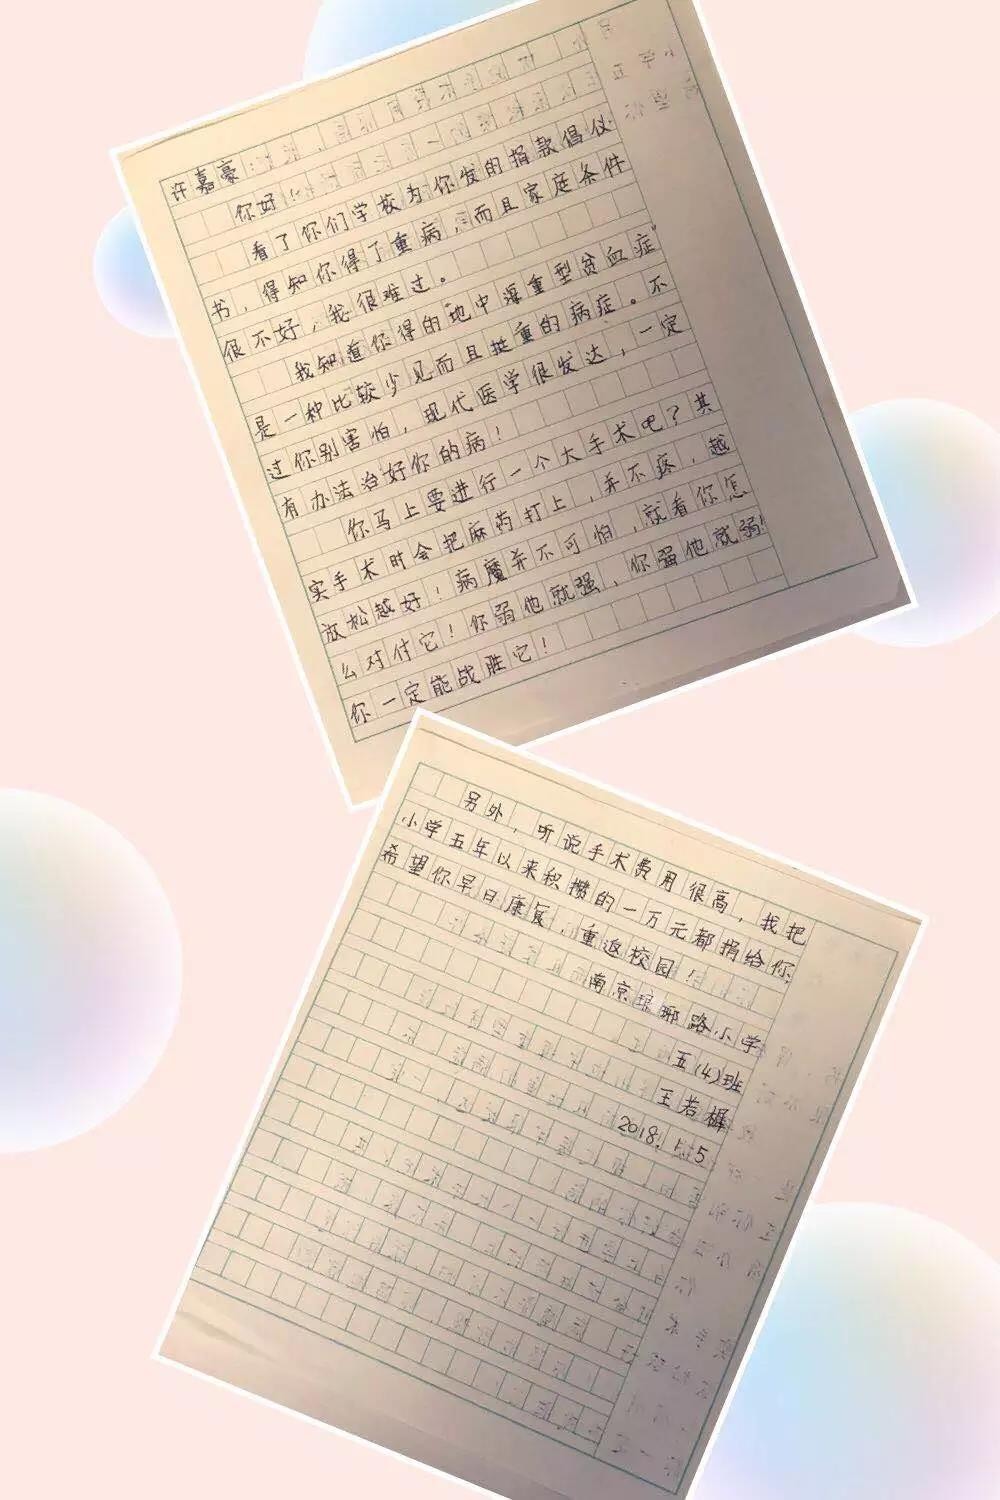 许嘉豪：
你好！
看了你们学校为你发的捐款倡仪
书，得知你得了重病，而且家庭条件
很不好，我很难过。
我知道你得的"地中海重型贫血症"
是一种比较少见而且挺重的病症。不
过你别害怕，现代医学很发达，一定
有办法治好你的病！
你马上要进行一个大手术吧？其
实手术时会把麻药打上，并不疼，越
放松越好！病魔并不可怕，就看你怎
么对付它！你弱他就强，你强他就弱！
你一定能战胜它！
另外，听说手术费用很高，我把
小学五年以来积攒的一万元都捐给你，
希望你早日康复，重返校园！
南京琅琊路小学
五(4)班
王若樨
2018.1.5